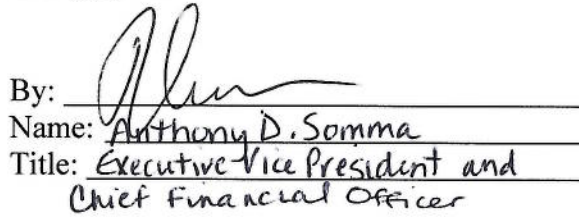 By:
Name: Anthony D. Somma
Title: Executive Vice President and
Chief Financial Officer